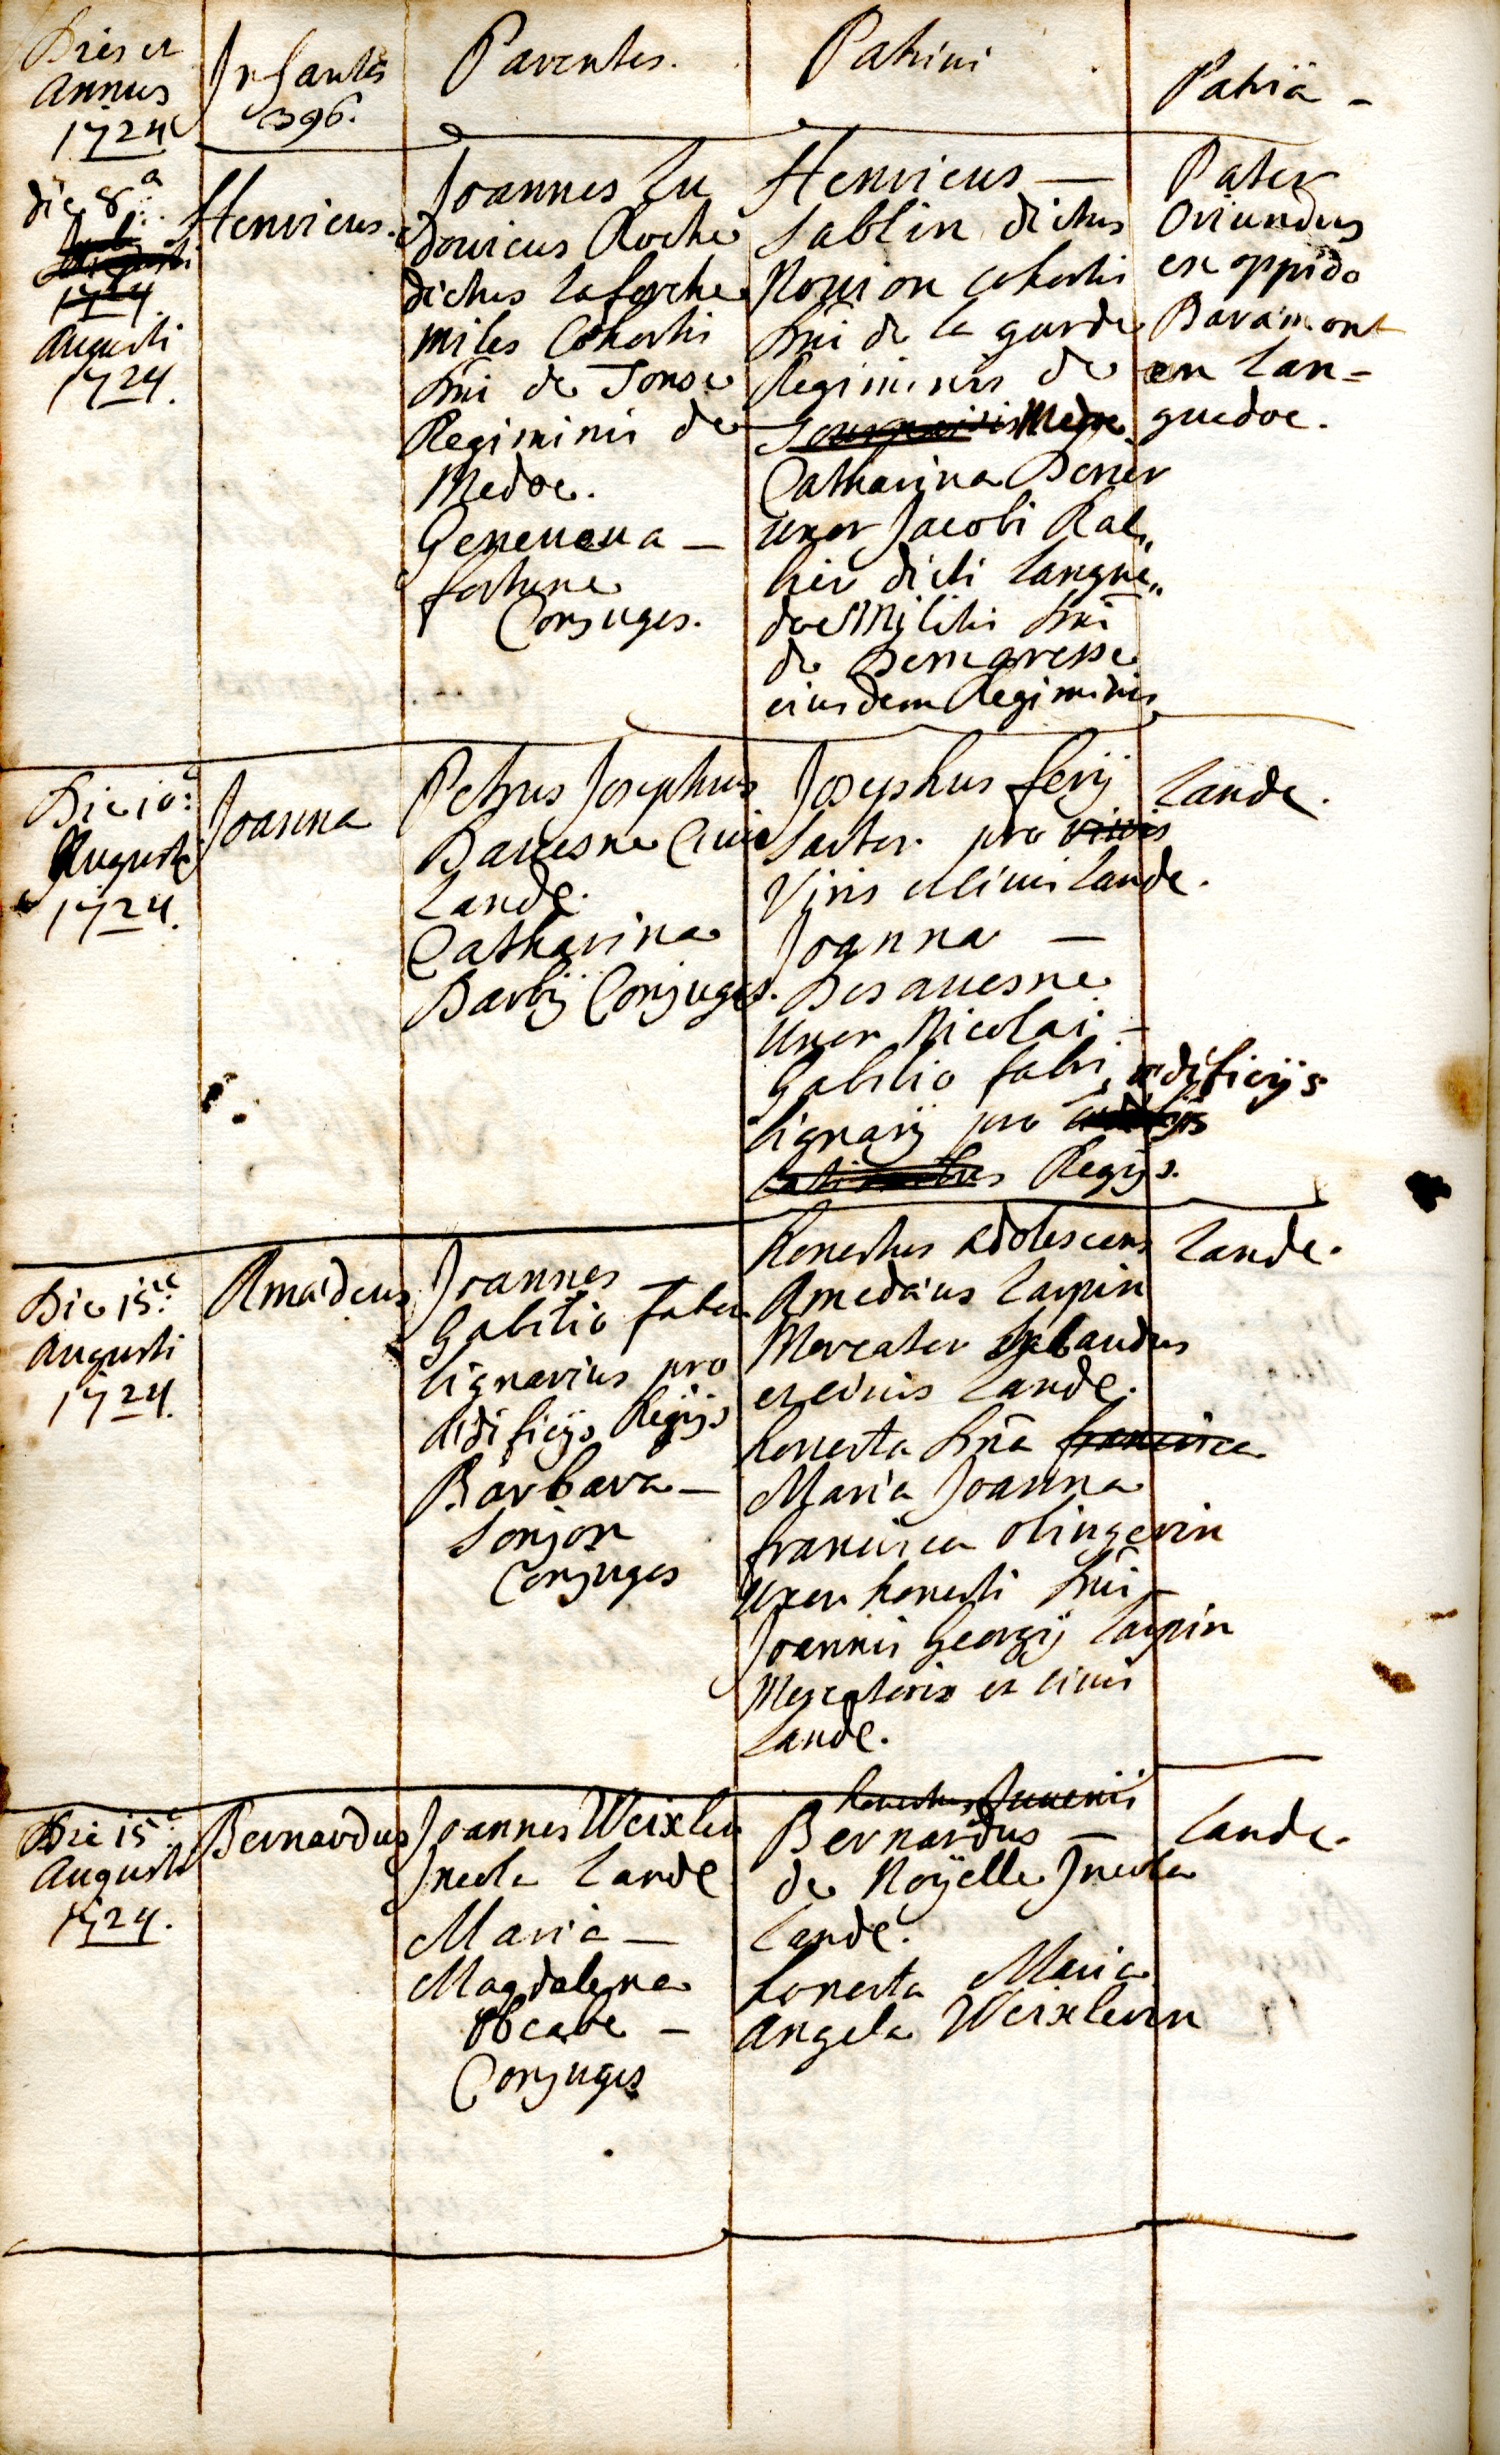 Dies et
Annus
1724
Infantes
396.
Parentes.
Patrini
Patriä -
die 8.a
Augusti
1724.
Henricus.
Joannes Lu
dovicus Roche
dictus Laforche
miles Cohortis
Dni de Jonse
Regiminis de
Medoc.
Geneueua -
fortune
Conjuges.
Henricus -
Sablin dictus
Noujon Cohortis
Dni de la garde
Regiminis de
Medoc
Catharina Boner
uxor Jacobi Ral„
hier dicti Langue„
doc Militis Dni
de
eiusdem Regiminis
Pater
Oriundus
ex oppido
Baramont
en Lan=
guedoc.
Die 10.a
Augusti
1724.
Joanna
Petrus Josephus
Dauesne Ciuis
Landae.
Catharina
Barbij Conjuges.
Josephus ferij
Sartor pro viris
Viris et Ciuis Landae.
Joanna -
Desauesne
uxor Nicolai -
Gabitio fabri aedificijs
lignarij pro
Regijs.
Landae.
Die 15.a
Augusti
1724.
Amadeus
Joannes
Gabitio Faber
lignarius pro
Aedificijs Regijs
Barbara -
Sonjon
Conjuges
honestus adolescens
Amedaeus Laypin
Mercator Sabaudus
et ciuis Landae.
honesta Dna francisca
Maria Joanna
francisca Olingerin
uxor honesti Dni -
Joannis Georgij Laypin
Mercatoris et ciuis
Landae.
Landae.
Die 15.a
Augusti
1724.
Bernardus
Joannes Weixler
Incola Landae
Maria -
Magdalena
Obcabe -
Conjuges
honestus Juuenis
Bernardus -
de Noyelle Incola
Landae.
honesta Maria
Angela Weixlerin
Landae.